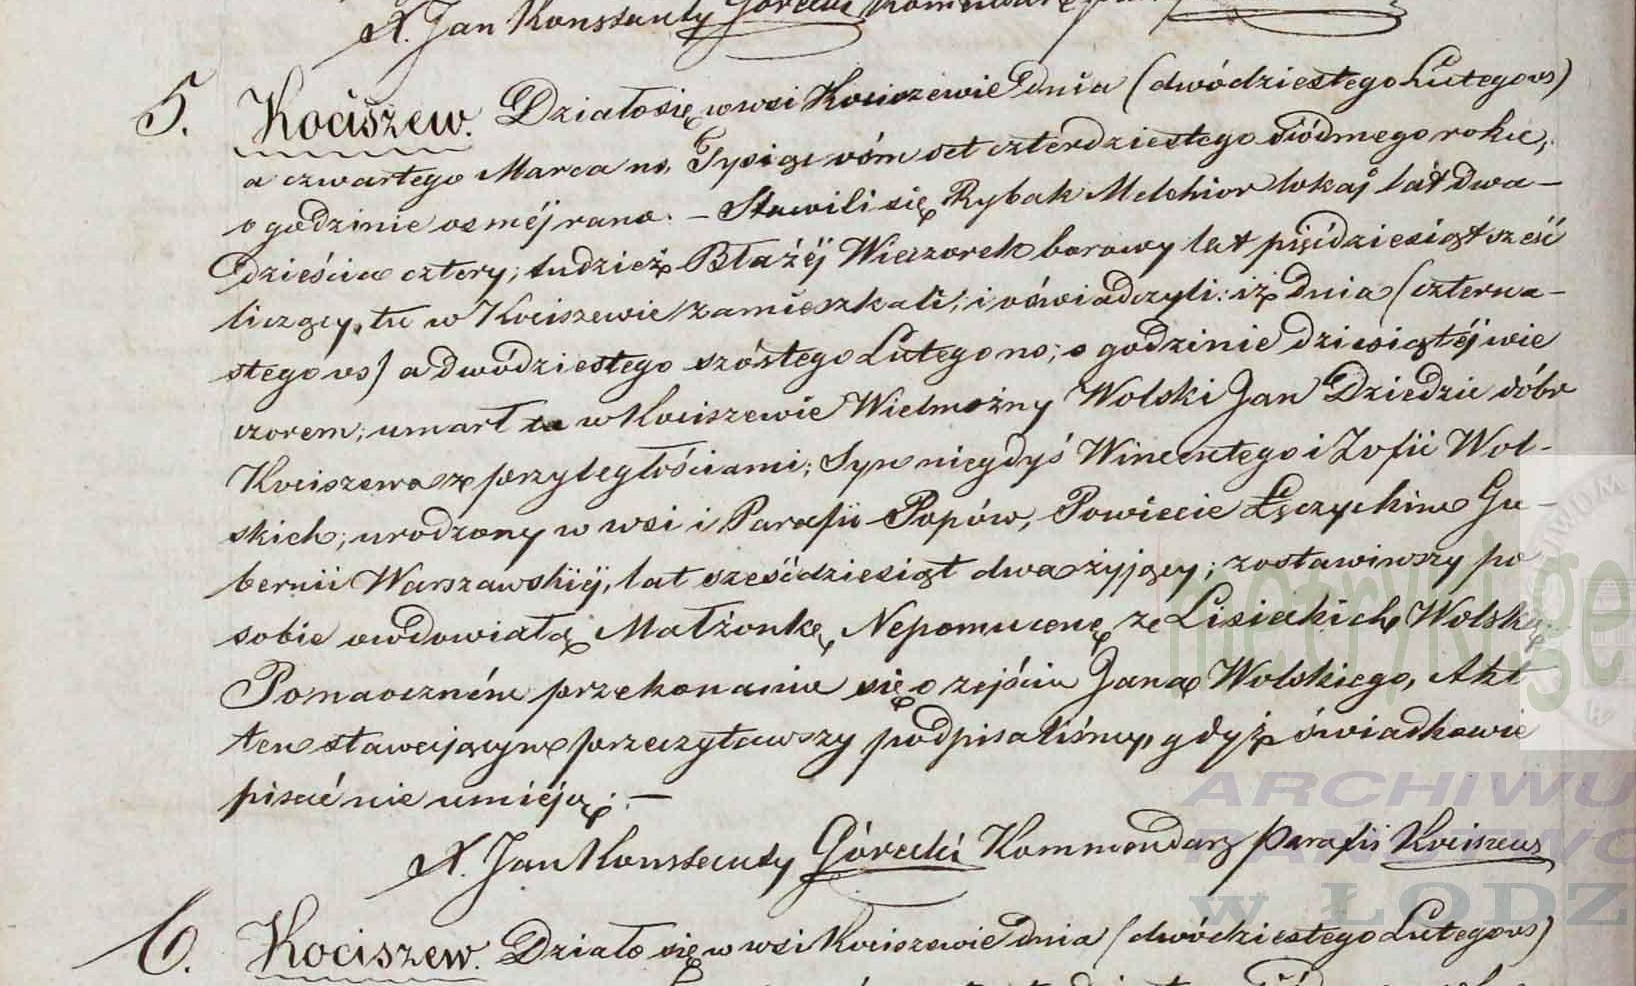 X. Jan Konstanty Górecki
5. Kociszew. Działo się w wsi Kociszewie dnia (dwódziestego Lutego vs)
a czwartego Marca ns, Tysiąc ośm set czterdziestego siódmego roku,
o godzinie osméj rano. – Stawili się Rybak Melchior lokaj lat dwa–
dzieścia cztery, tudzież Błażéj Wieczorek borowy lat pięćdziesiąt sześć
liczący, tu w Kociszewie zamieszkali; i oświadczyli: iż dnia (czterna–
stego vs) a dwódziestego szóstego Lutego ns; o godzinie dziesiątéj wie
czorem; umarł tu w Kociszewie Wielmożny Wolski Jan Dziedzic dóbr
Kociszewa z przyległościami; Syn niegdyś Wincentego i Zofii Wol-
skich; urodzony w wsi i Parafii Popów, Powiecie Łęczyckim Gu–
bernii Warszawskiéj, lat sześćdziesiąt dwa żyjący; zostawiwszy po
sobie owdowiałą Małżonkę Nepomucenę z Lisieckich Wolską.
Po naoczném przekonaniu się o zejściu Jana Wolskiego, Akt
ten stawającym przeczytawszy podpisaliśmy, gdyż świadkowie
pisać nie umieją. –
X. Jan Konstanty Górecki Kommendarz Parafii Kociszew
6. Kociszew. Działo się w wsi Kociszewie dnia (dwódziestego Lutego vs)
metryki.ge
ARCHIWU
PAŃSTWO
w ŁODZ